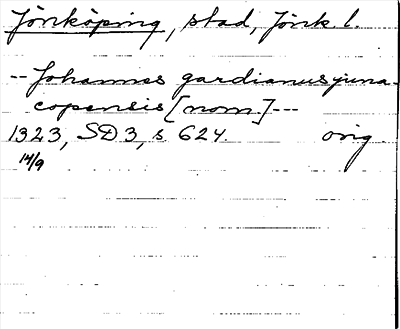 Jönköping, stad, Jönk l.
-- Johannes gardianus juna-
copensis [nom] ---
1323, SD 3, s 624. orig
14/9